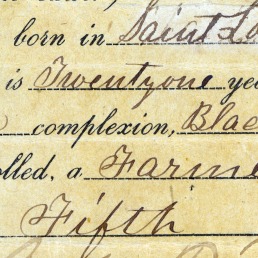 born in Saint Lo
is Twentyone ye
complexion, Blac
olled, a Farme
Fifth